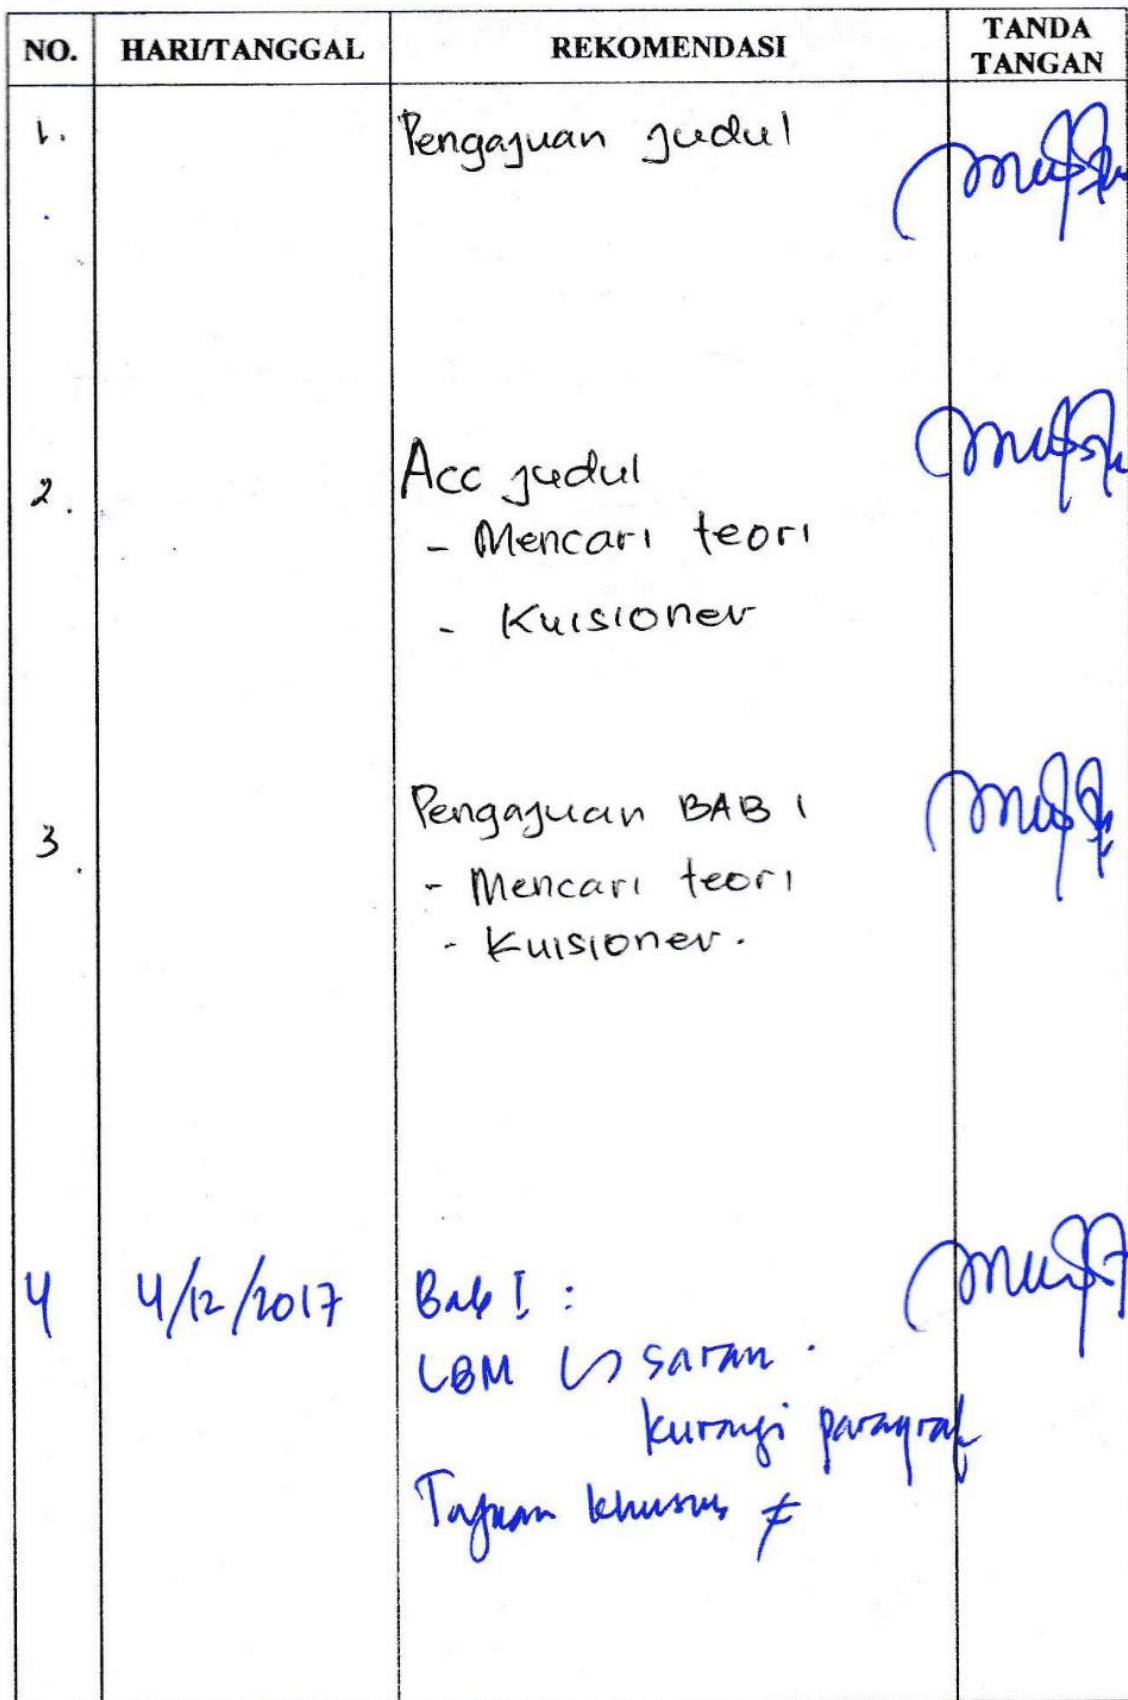 NO. HARI/TANGGAL REKOMENDASI TANDA TANGAN
1. Pengajuan judul
2. Acc judul
- Mencari teori
- Kuisioner
3. Pengajuan BAB 1
- Mencari teori
- Kuisioner.
4 4/12/2017 Bab I :
LBM saran.
kurangi paragraf
Tujuan khusus ≠